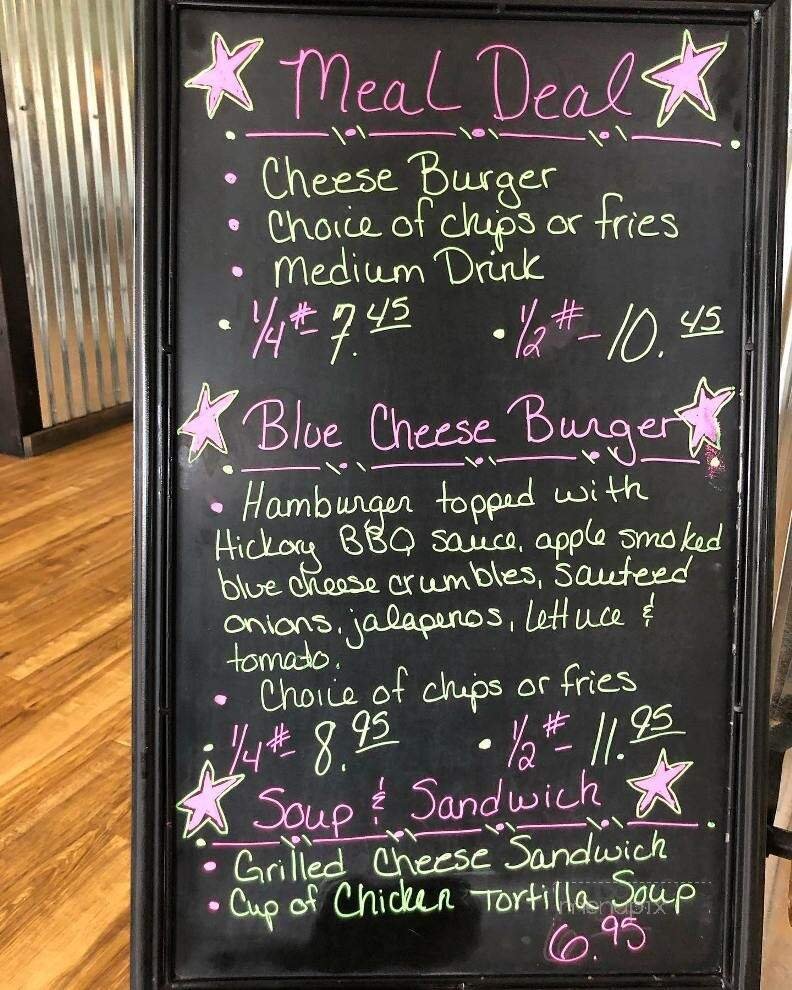 Meal Deal
• Cheese Burger
• Choice of chips or fries
• Medium Drink
• 1/4# - 7.45 • 1/2# - 10.45
Blue Cheese Burger
• Hamburger topped with
Hickory BBQ sauce, apple smoked
blue cheese crumbles, sauteed
onions, jalapenos, lettuce &
tomato.
• Choice of chips or fries
• 1/4# - 8.95 • 1/2# - 11.95
Soup & Sandwich
• Grilled Cheese Sandwich
• Cup of Chicken Tortilla Soup
6.95